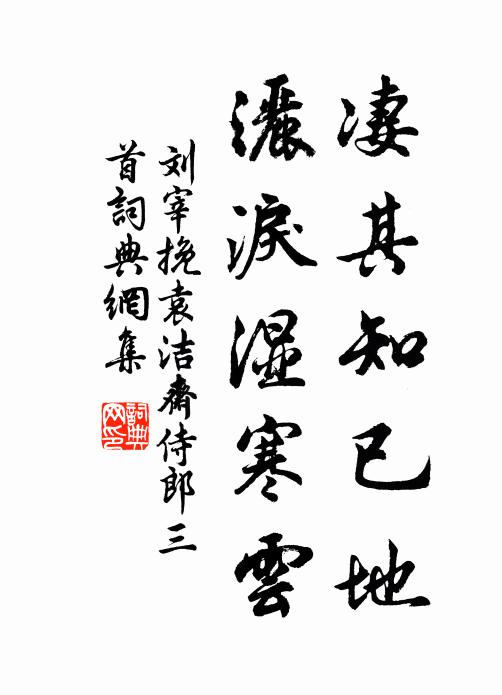 凄其知已地
灑淚湿寒雲
刘宰挽袁洁齋侍郎三
首詞典網集
詞典
网印